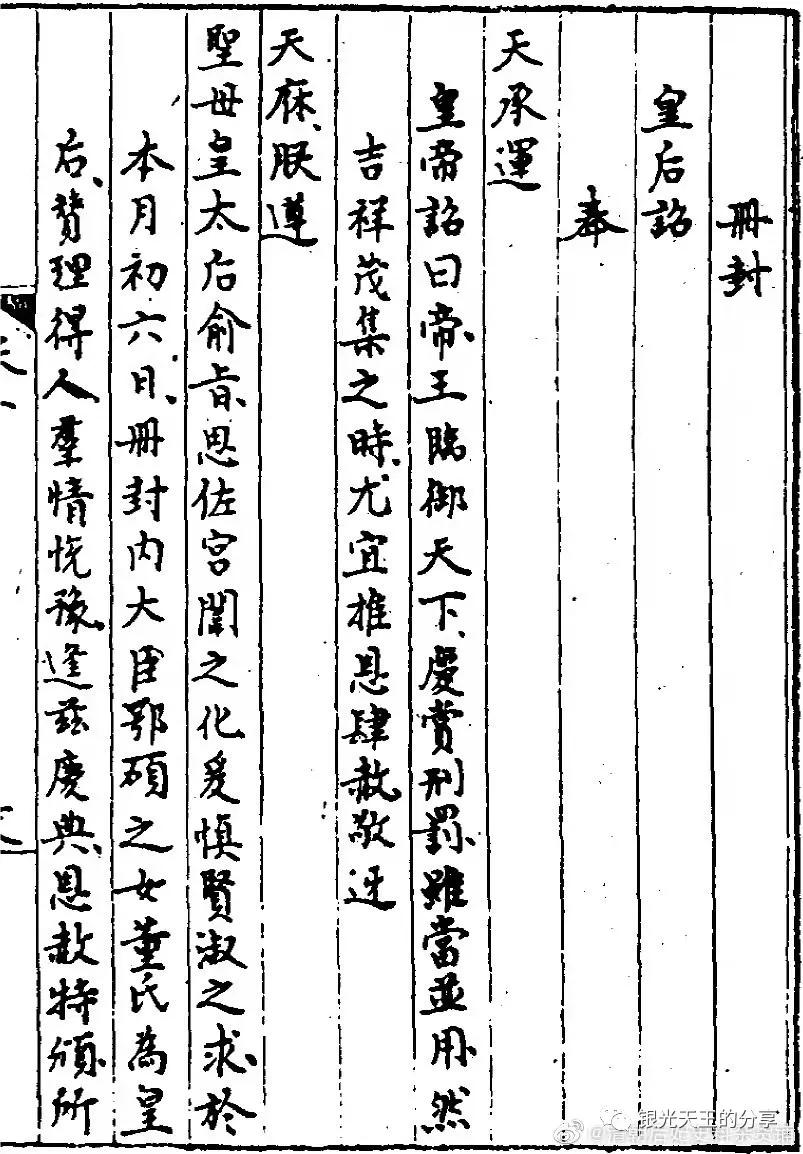 冊封
皇后詔
奉
天承運
皇帝詔曰帝王臨御天下、慶賞刑罰、雖當並用、然
吉祥茂集之時、尤宜推恩肆赦敬迓
天庥、朕遵
聖母皇太后俞旨、思佐宮闈之化爰慎賢淑之求、於
本月初六日、冊封内大臣鄂碩之女董氏為皇
后、贊理得人羣情悅豫、逢茲慶典、恩赦特頒、所
银光天王的分享